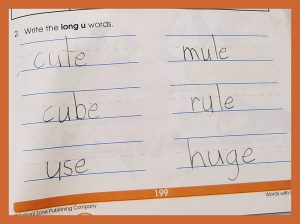 2 Write the long u words.
cute mule
cube rule
use huge
199
Zone Publishing Company Words with